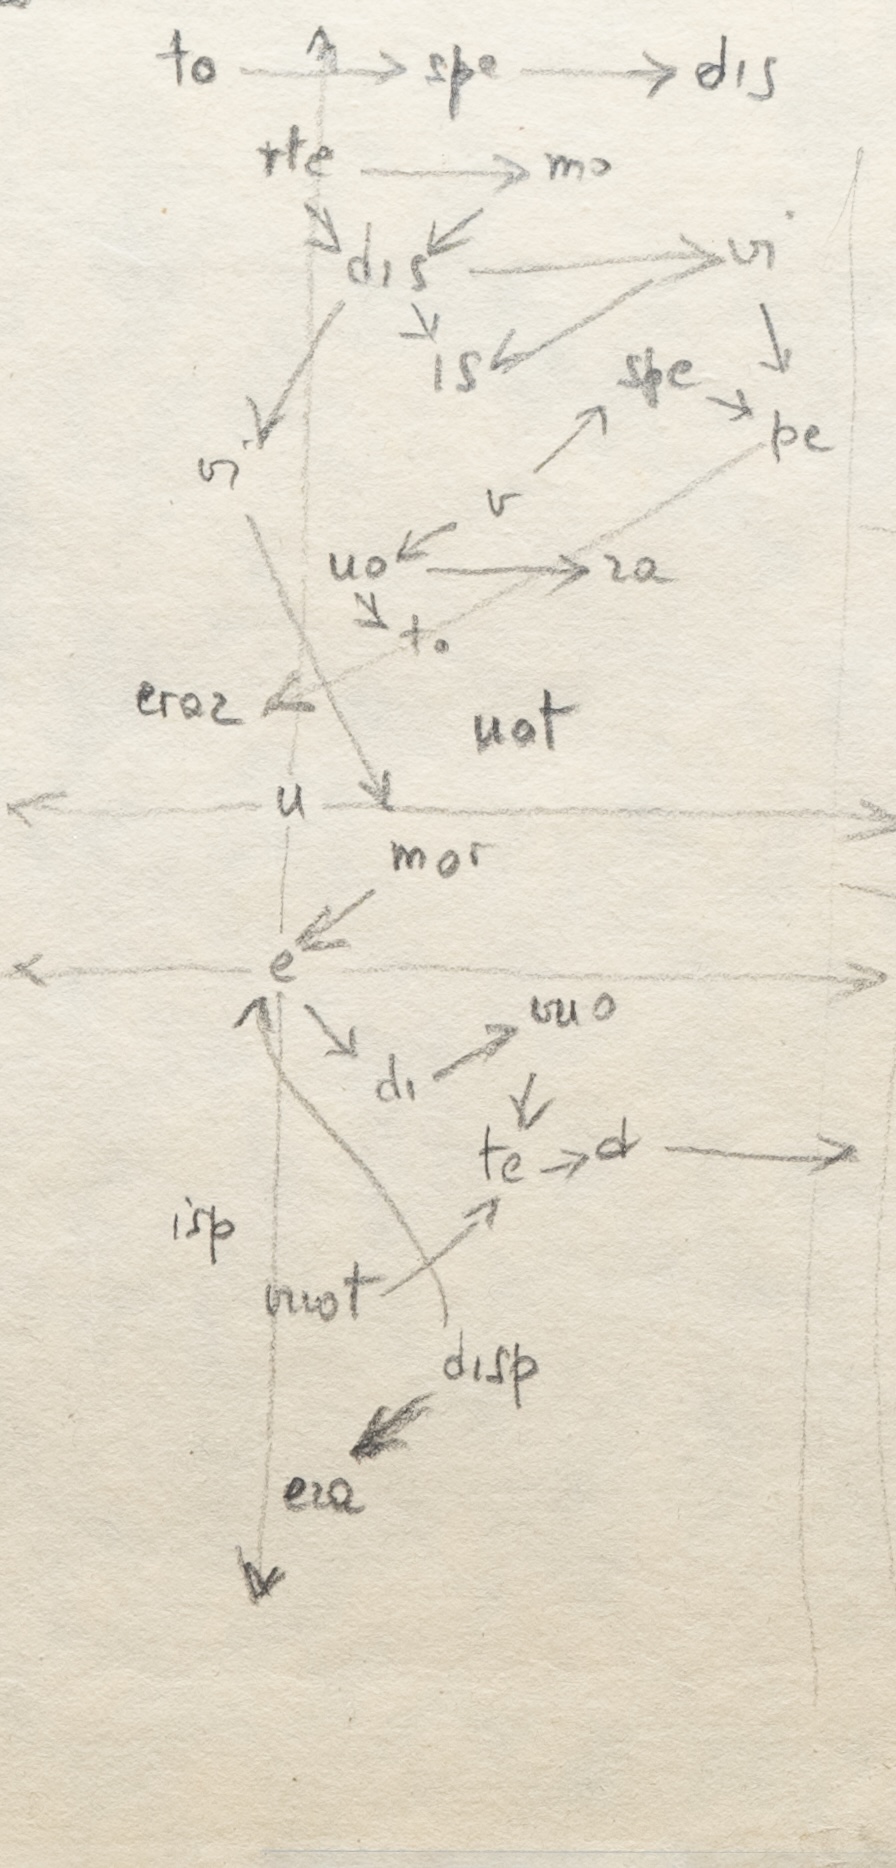 to spe dis
rte mo
dis vi
is spe
pe
vi
v
uo za
to
eraz
uot
u
mor
e
vuo
di
te d
isp
vuot
disp
eza